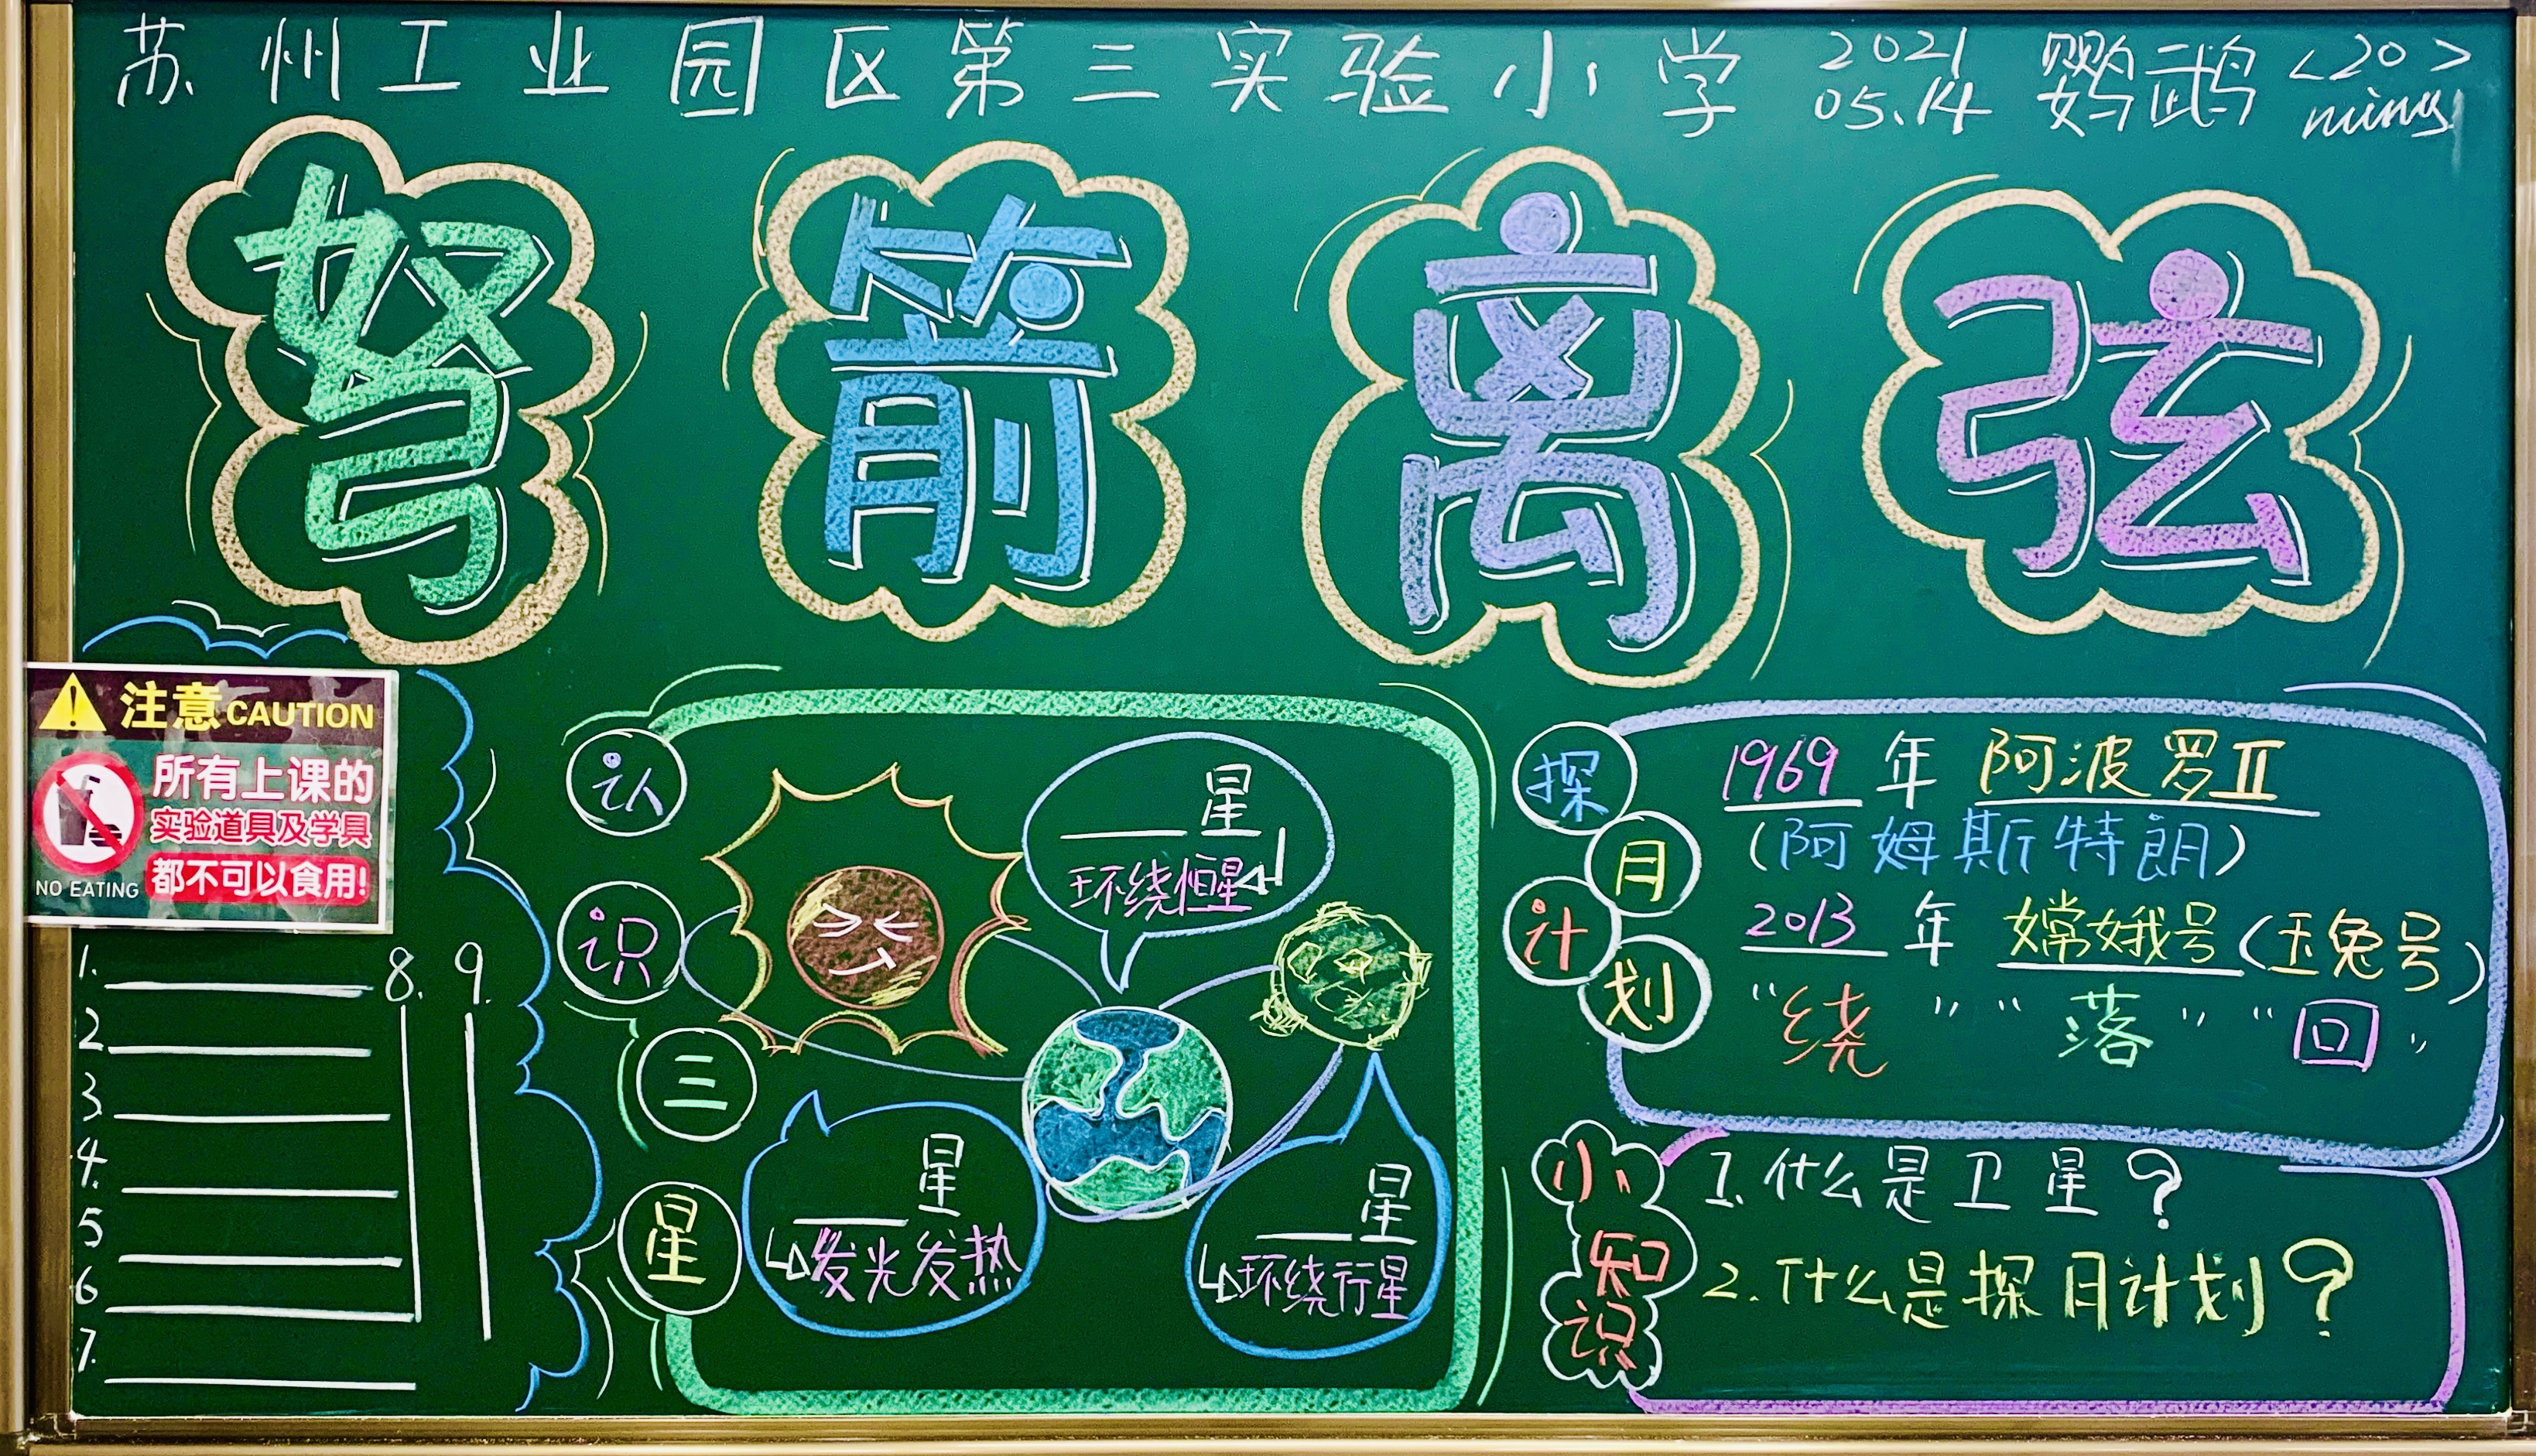 苏州工业园区第三实验小学 2021 05.14 鹦鹉 <20> ming
弩箭离弦
注意 CAUTION
所有上课的
实验道具及学具
都不可以食用!
NO EATING
1.
2
3
4.
5
6
7.
8.
9.
认识三星
星
环绕恒星
星
发光发热
星
环绕行星
探月计划
1969 年 阿波罗II
(阿姆斯特朗)
2013 年 嫦娥号(玉兔号)
“绕” “落” “回”
小知识
1. 什么是卫星?
2. 什么是探月计划?